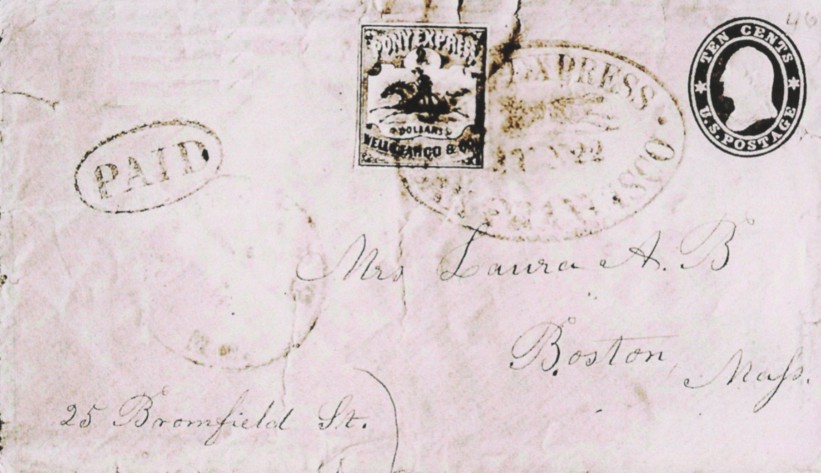 46
PONY EXPRESS
DOLLARS
WELLS FARGO & CO
EXPRESS
SAN FRANCISCO
TEN CENTS
U.S. POSTAGE
PAID
Mrs Laura A. B
Boston,
Mass.
25 Bromfield St.